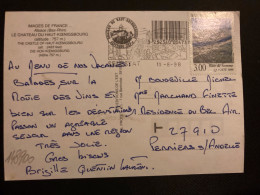 IMAGES DE FRANCE
ALSACE (Bas-Rhin)
LE CHATEAU DU HAUT-KOENIGSBOURG
(altitude : 757 m)
THE CASTLE OF HAUT-KOENIGSBOURG
3,00
AU MENU DE NOS VACANCES
BALADES SUR LA
ROUTE DES VINS ET
BIEN SUR LES DÉGUSTATIONS
PASSONS UN AGRÉABLE
SEJOUR DANS UNE RÉGION
TRÈS JOLIE.
GROS BISOUS
BRIGITTE QUENTIN
M BOURVILLE MICHEL
Mme MARCHAND GINETTE
RESIDENCE DU BEL AIR
27910
PERRIERS S/ANDELLE